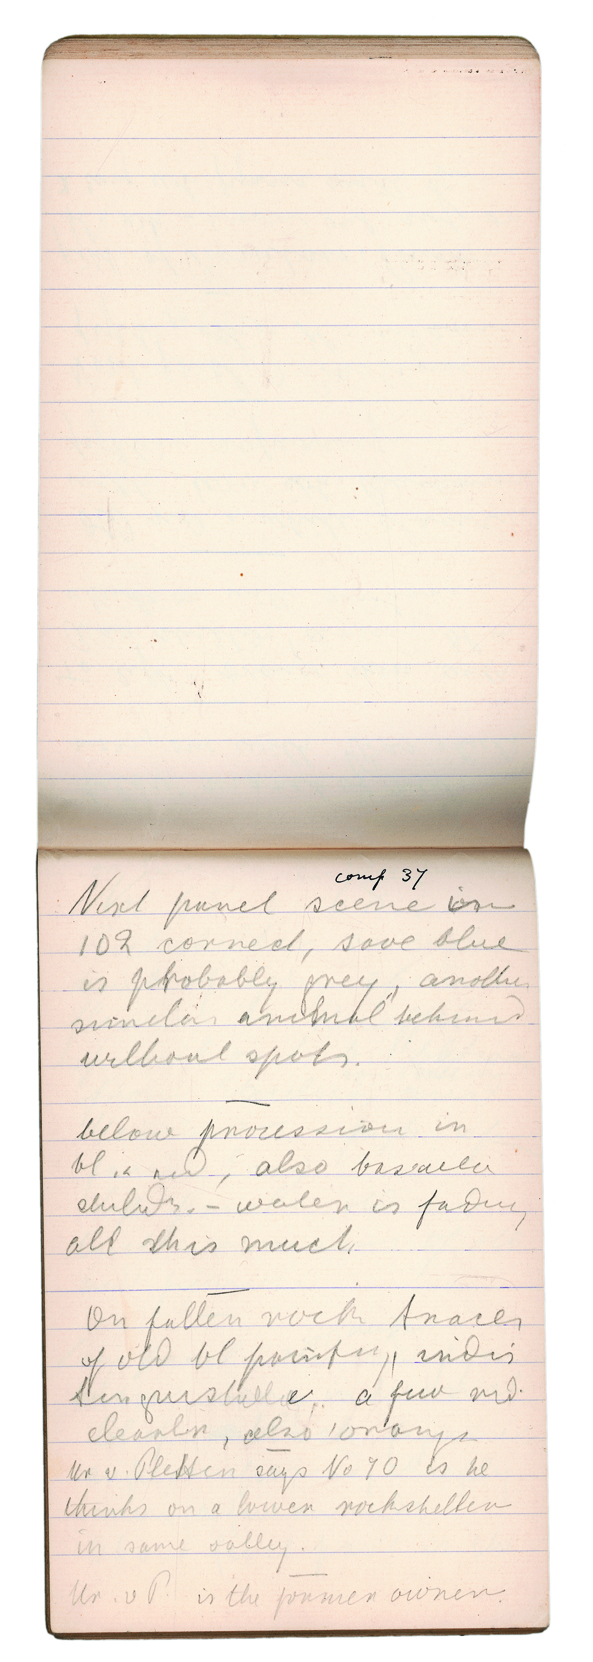 comp 37
Next panel scene on
102 correct, save blue
is probably grey, another
similar animal behind
without spots.
below procession in
bl. & red, also
shields. - water is fading
all this much.
On fallen rock traces
of old bl painting, indis
tinguishable. a few red
clearer, also orange
Mr. v. Pletten says No 70 is he
thinks on a lower rockshelter
in same valley.
Mr. v P. is the former owner.